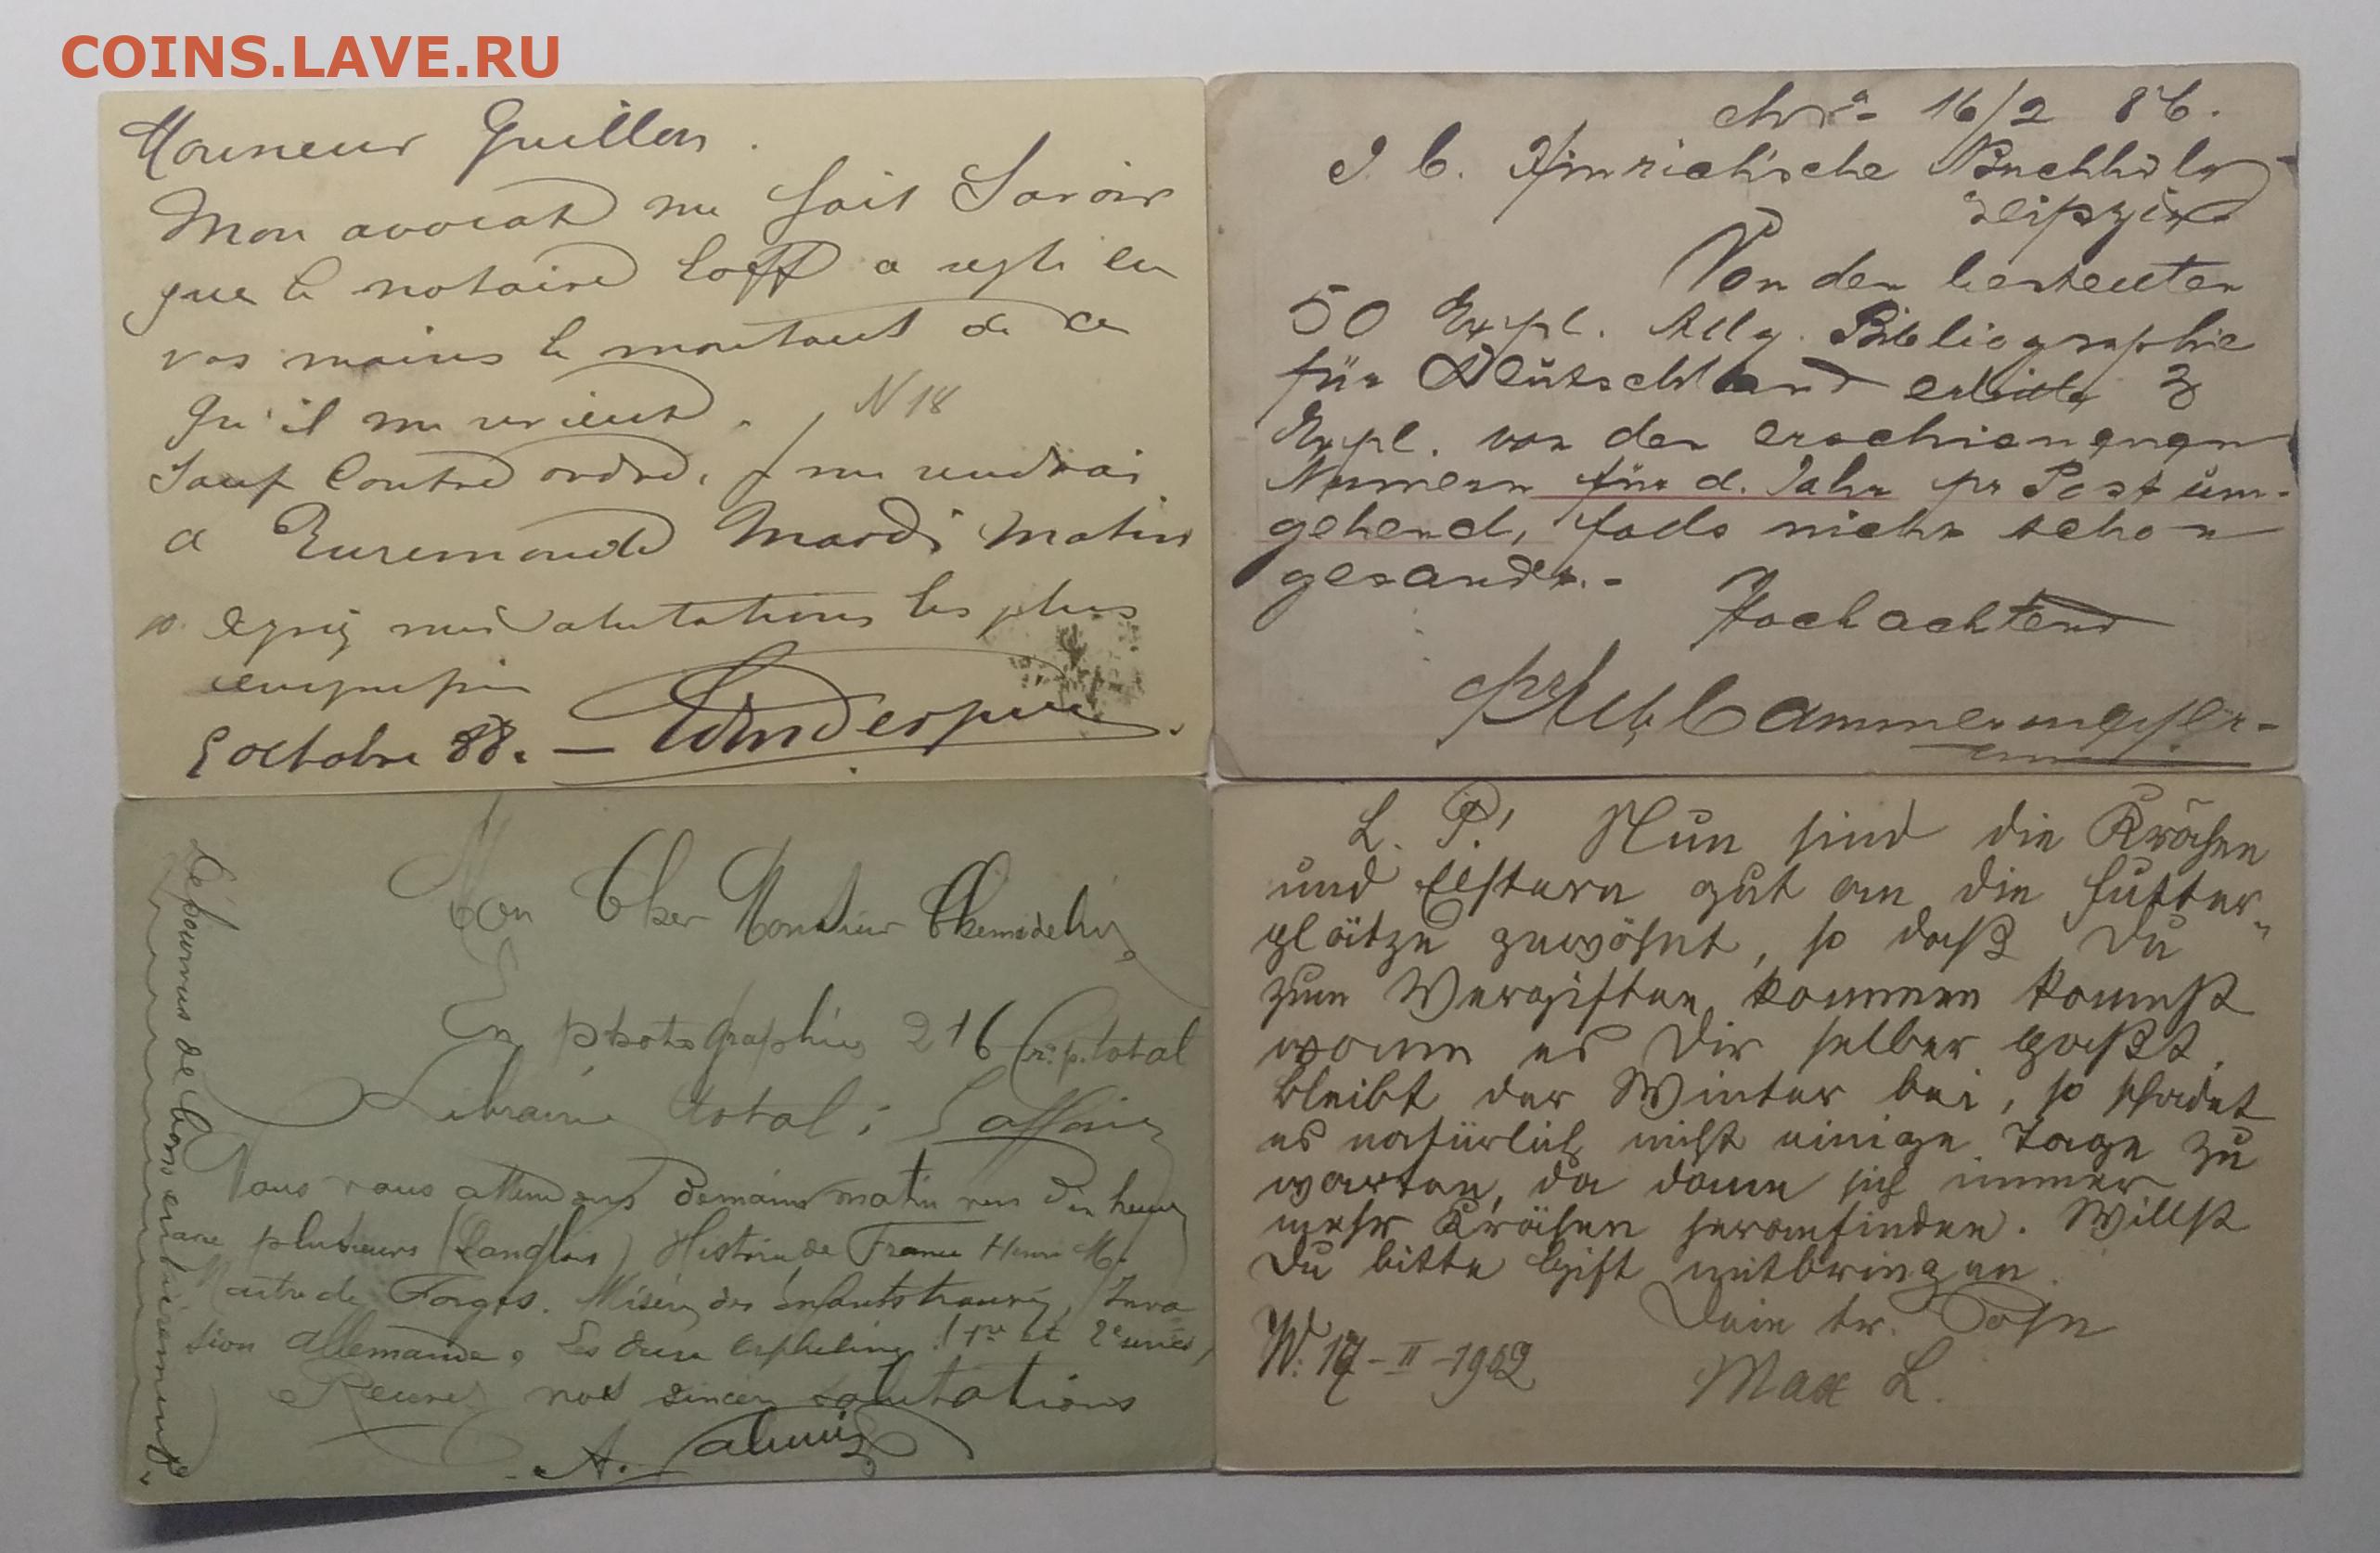 COINS.LAVE.RU
Monsieur Guillon.
Mon avocat me fait Savoir
que le notaire Loeff a
vos mains le montant de ce
qu'il me revient. N 18
Sauf Contre ordre, je me rendrai
a Ruremonde Mardi matin
salutations les plus
5 octobre 88.
16/2 86.
J. C. Hinrichs'sche Buchhdlg
Leipzig
Von den bestellten
50 Expl. Allg. Bibliographie
für Deutschland erbitte 3
Expl. von den erschienenen
Numern für d. Jahr pr Post um-
gehend, falls nicht schon
gesandt.-
Hochachtend
Alb Cammermeyer-
Mon Cher Monsieur
En photographies 216 total
Librairie total:
Nous vous attendons demain matin vers dix heures
plusieurs (Langlois) Histoire de France Henri M.
Maître de Forges. Misère des enfants trouvés, Inva-
sion allemande, Les deux orphelines (1re et 2e séries,
Recevez nos sincères salutations
A.
dépourvus de
L. P.! Nun sind die Krähen
und Elstern gut an die Futter-
plätze gewöhnt, so daß Du
zum Vergiften kommen kannst
wann es Dir selber paßt.
Bleibt der Winter bei, so schadet
es natürlich nicht einige Tage zu
warten, da dann sich immer
mehr Krähen heranfinden. Willst
Du bitte Gift mitbringen.
Dein tr. Sohn
W. 17-II-1902
Max L.